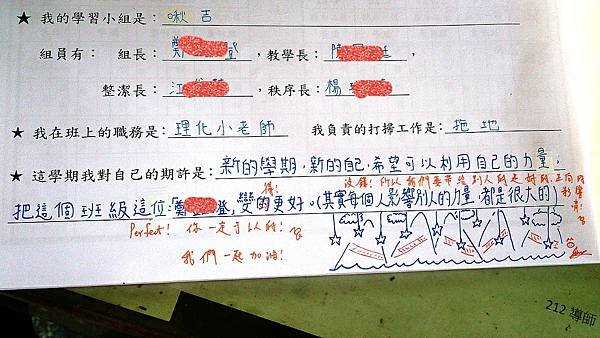 ★ 我的學習小組是: 啾吉
組員有: 組長: 鄭 登,教學長: 陳 廷,
整潔長: 江 ,秩序長: 楊
★ 我在班上的職務是: 理化小老師 我負責的打掃工作是: 拖地
★ 這學期我對自己的期許是: 新的學期,新的自己,希望可以利用自己的力量,
沒錯!所以我們要帶給別人的是好的、正向的影響!
得!
把這個班級這位 登,變的更好。(其實每個人影響別人的力量,都是很大的)
Perfect! 你一定可以的!
我們一起加油!
212 導師